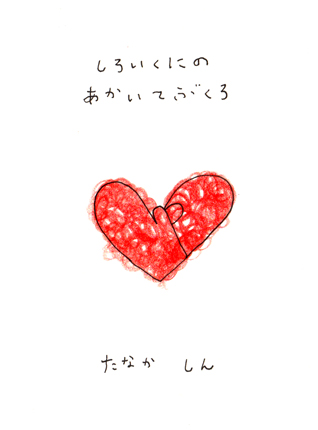 しろいくにの
あかいてぶくろ
たなか しん